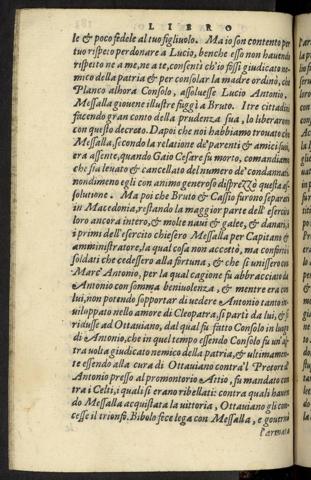 LIBRO
le & poco fedele al tuo figliuolo. Ma io son contento per
tuo rispetto perdonare a Lucio, benche esso non hauendo
rispetto ne a me, ne a te, consentì ch'io fossi giudicato ne-
mico della patria & per consolar la madre ordinò, che
Planco alhora Consolo, assoluesse Lucio Antonio.
Messalla giouene illustre fuggì a Bruto. I tre cittadini
facendo gran conto della prudenza sua, lo liberarono
con questo decreto. Dapoi che noi habbiamo trouato che
Messalla, secondo la relatione de' parenti & amici suoi,
era assente, quando Gaio Cesare fu morto, comandiamo
che sia leuato & cancellato del numero de' condannati.
nondimeno egli con animo generoso disprezzò questa as-
solutione. Ma poi che Bruto & Cassio furono separati
in Macedonia, restando la maggior parte dell' esercito
loro ancora intero, & molte naui & galee, & danari, &
i primi dell' esercito chiesero Messalla per Capitano &
amministratore, la qual cosa non accettò, ma confortò i
soldati che cedessero alla fortuna, & che si unissero con
Marc' Antonio, per la qual cagione fu abbracciato da
Antonio con somma beniuolenza, & mentre era con
lui, non potendo sopportar di uedere Antonio tanto in-
uiluppato nello amore di Cleopatra, si partì da lui, & si
ridusse ad Ottauiano, dal qual fu fatto Consolo in luogo
di Antonio, che in quel tempo essendo Consolo fu un' al-
tra uolta giudicato nemico della patria, & ultimamen-
te essendo alla cura di Ottauiano contra'l Pretore di
Antonio presso al promontorio Attio, fu mandato con
tra i Celti, i quali si erano ribellati: contra quali hauen
do Messalla acquistata la uittoria, Ottauiano gli con-
cesse il trionfo. Bibolo fece lega con Messalla, e gouernò
l'armata